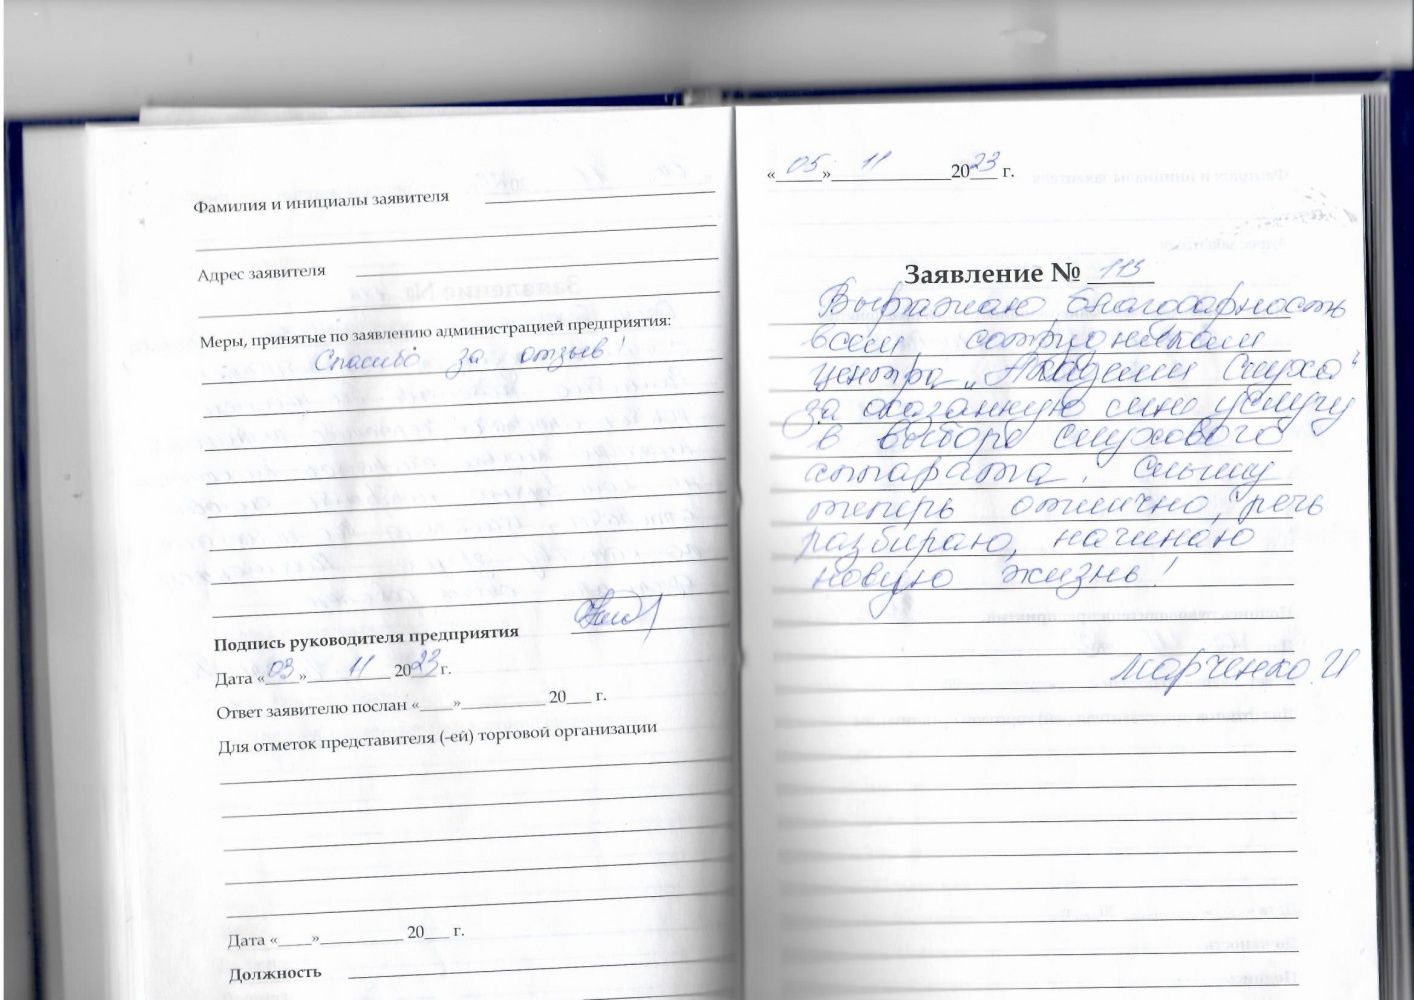 Фамилия и инициалы заявителя
Адрес заявителя
Меры, принятые по заявлению администрацией предприятия:
Спасибо за отзыв!
Подпись руководителя предприятия
Дата «03» 11 2023 г.
Ответ заявителю послан «____»__________ 20___ г.
Для отметок представителя (-ей) торговой организации
Дата «____»__________ 20___ г.
Должность
«05» 11 2023 г.
Заявление № 115
Выражаю благодарность
всем сотрудникам
центра „Академии Слуха“
за оказанную мне услугу
в выборе слухового
аппарата. Слышу
теперь отлично, речь
разбираю, начинаю
новую жизнь!
Марченко И